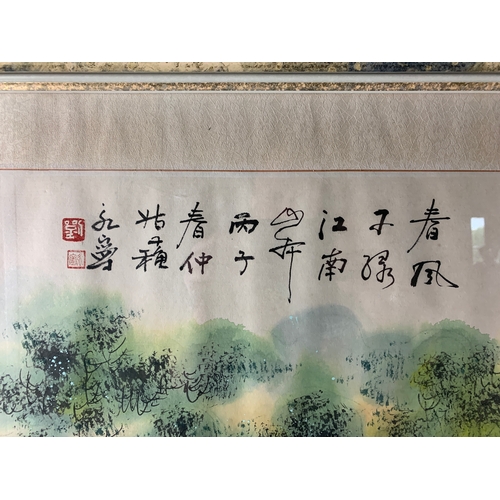 春风
又绿
江南
岸
丙子
春仲
姑蘓
永寧
劉